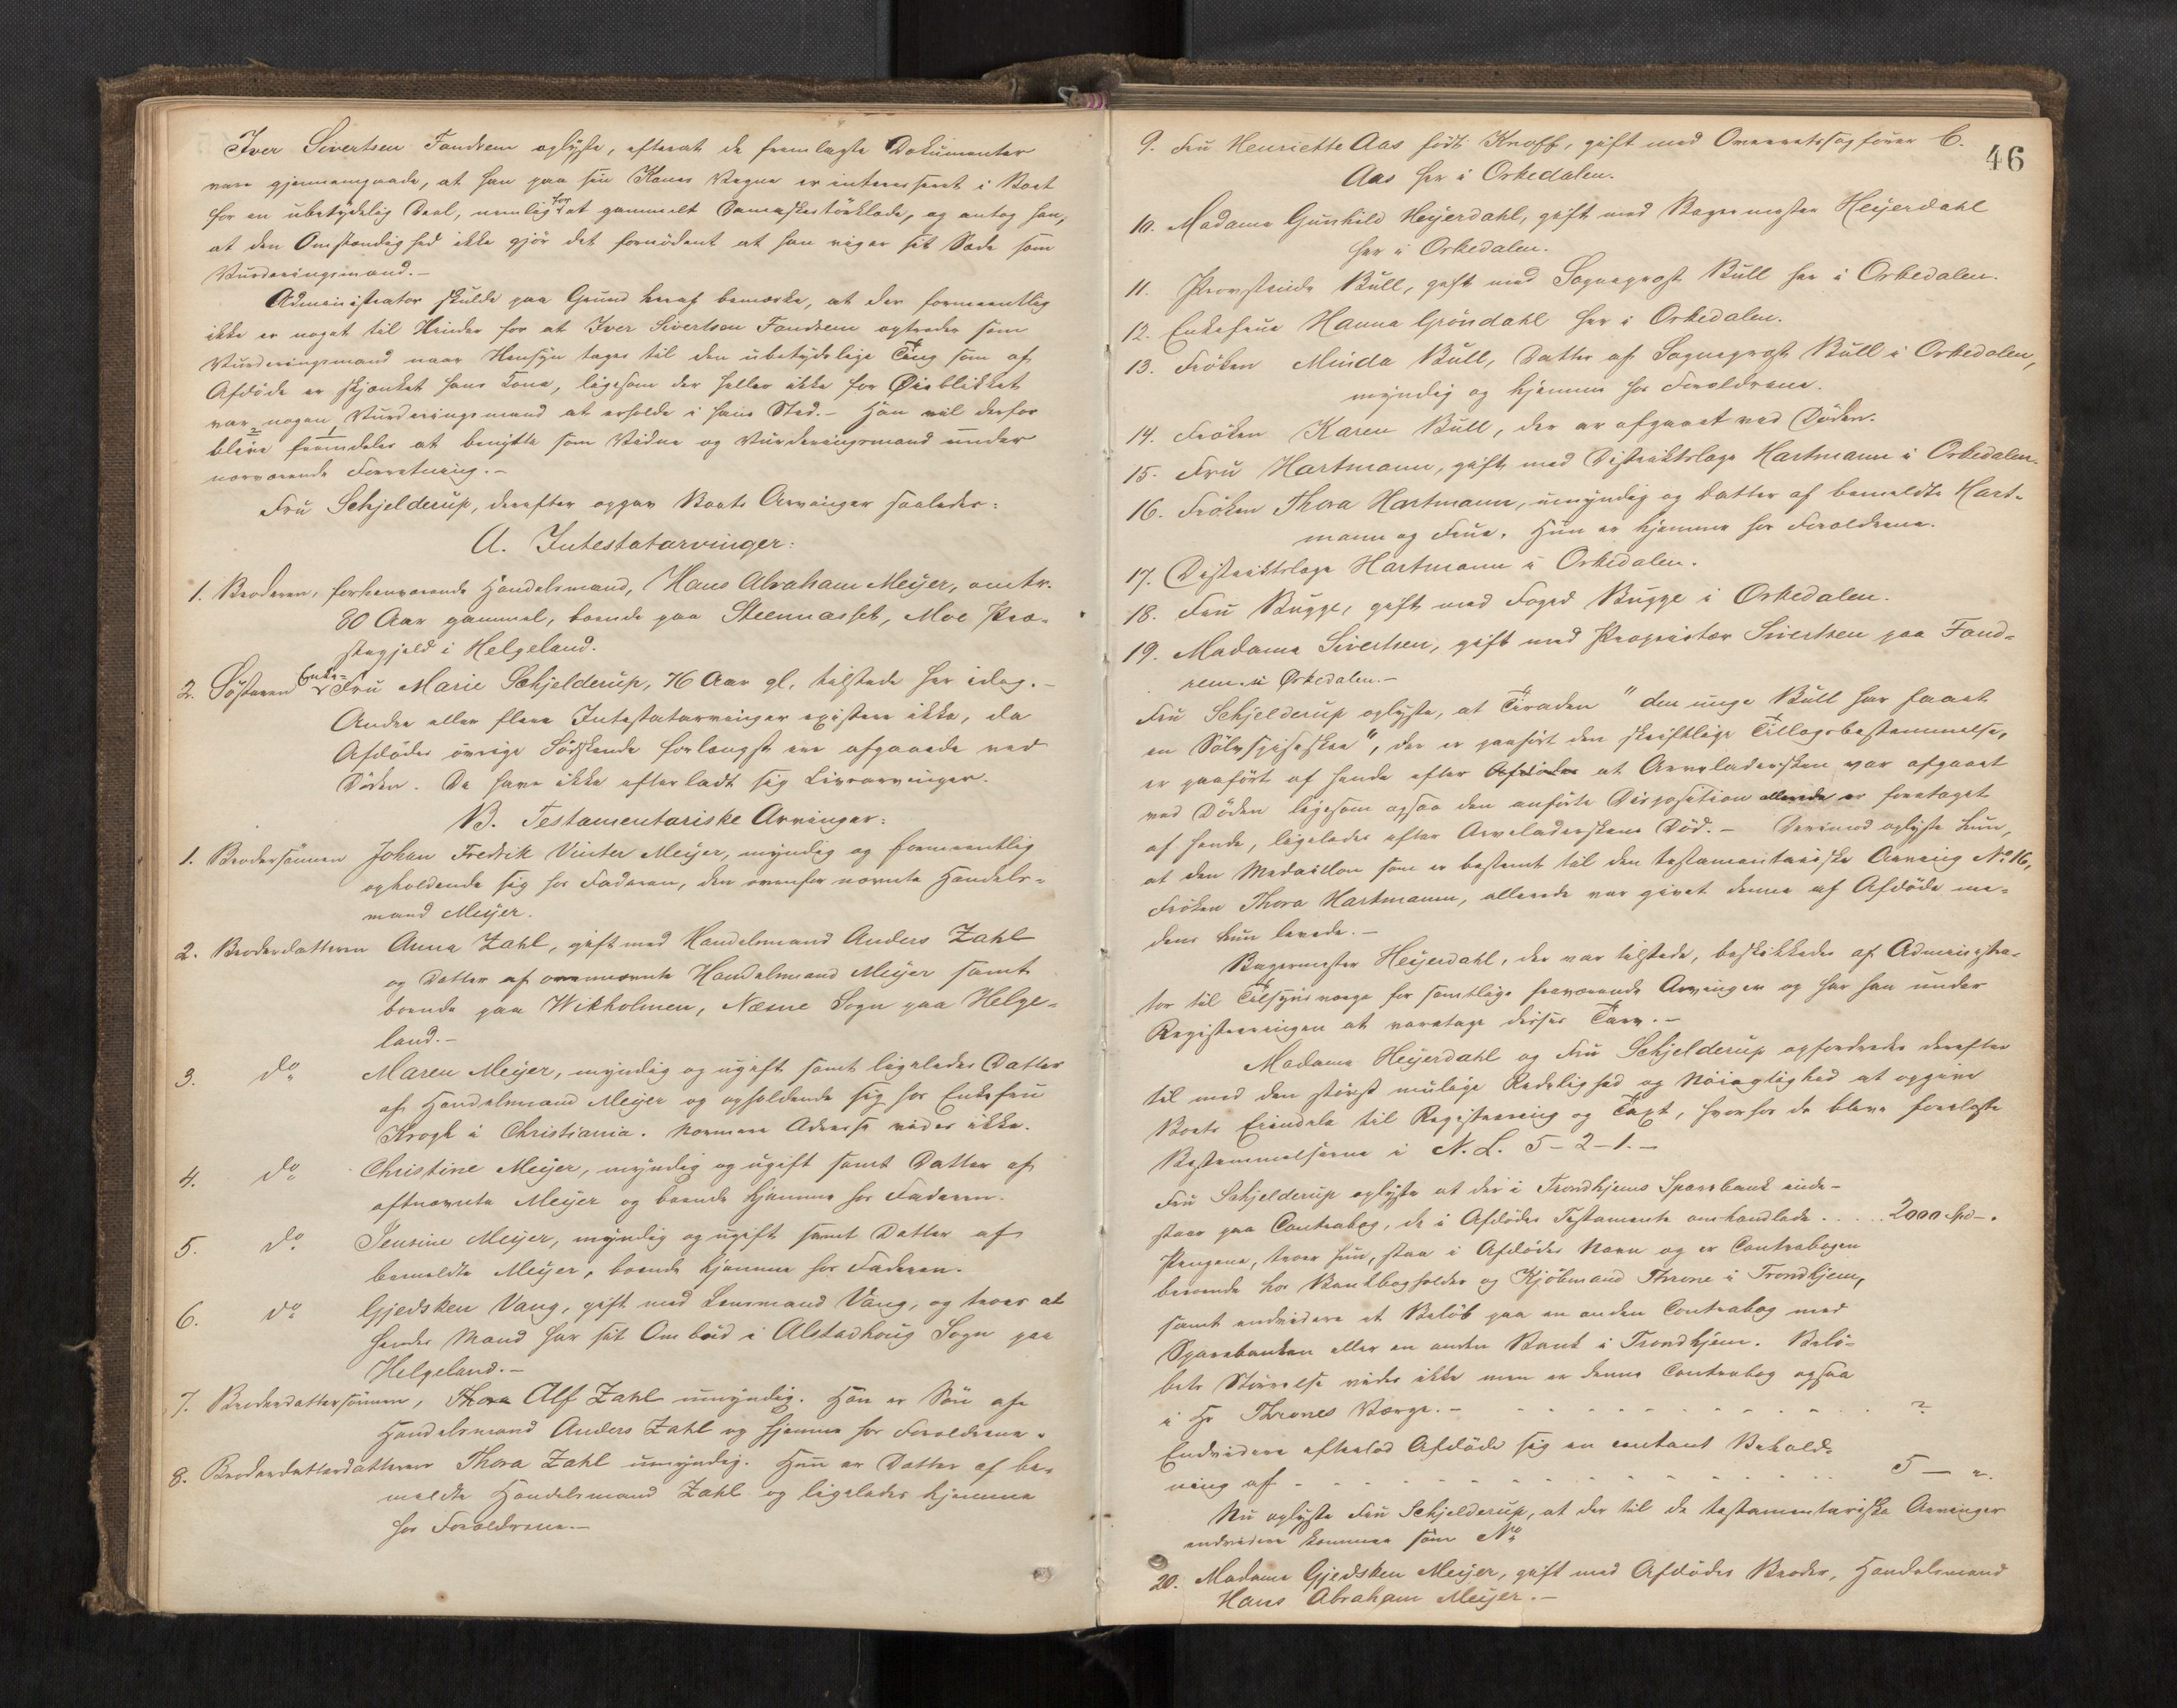 Iver Sivertsen Fandrem oplyste, efterat de fremlagte Dokumenter
vare gjennemgaaede, at han paa sin Kones Vegne er interesseret i Boet
for en ubetydelig Deel, nemlig for et gammelt Damaskestörklæde, og antog han,
at den Omstændighed ikke gjör det fornödent at han viger sit Sæde som
Vurderingsmand.-
Administrator skulde paa Grund heraf bemærke, at der formeentlig
ikke er noget til Hinder for at Iver Sivertsen Fandrem optræder som
Vurderingsmand naar Hensyn tages til den ubetydelige Ting som af
Afdöde er skjænket hans Kone, ligesom der heller ikke for Øieblikket
var nogen Vurderingsmand at erholde i hans Sted.- Han vil derfor
blive fremdeles at benytte som Vidne og Vurderingsmand under
nærværende Forretning.-
Fru Schjelderup, derefter opgav Boets Arvinger saaledes:
A. Intestatarvinger:
1. Broderen, forhenværende Handelsmand, Hans Abraham Meyer, omtr.
80 Aar gammel, boende paa Steennæsset, Moe Præ-
stegjeld i Helgeland.
2. Söstеren Enke-Fru Marie Schjelderup, 76 Aar gl. tilstede her idag.-
Andre eller flere Intestatarvinger existere ikke, da
Afdödes övrige Södskende forlængst ere afgaaede ved
Döden. De have ikke efterladt sig Livsarvinger.
B. Testamentariske Arvinger:
1. Brodersönnen Johan Fredrik Vinter Meyer, myndig og formeentlig
opholdende sig hos Faderen, den ovenfor nævnte Handels-
mand Meyer.
2. Broderdatteren Anna Zahl, gift med Handelsmand Anders Zahl
og Datter af ovennævnte Handelsmand Meyer samt
boende paa Wikholmen, Næsne Sogn paa Helge-
land.-
3. do Maren Meyer, myndig og ugift samt ligeledes Datter
af Handelsmand Meyer og opholdende sig hos Enkefru
Krogh i Christiania. Nærmere Adresse vides ikke.
4. do Christine Meyer, myndig og ugift samt Datter af
oftnævnte Meyer og boende hjemme hos Faderen.
5. do Jensine Meyer, myndig og ugift samt Datter af
bemeldte Meyer, boende hjemme hos Faderen.
6. do Gjedsken Vang, gift med Lensmand Vang, og troes at
hendes Mand har sit Ombud i Alstadhoug Sogn paa
Helgeland.-
7. Broderdattersönnen, Thora Alf Zahl umyndig. Han er Sön af
Handelsmand Anders Zahl og hjemme hos Forældrene.
8. Broderdatterdatteren Thora Zahl umyndig. Hun er Datter af be-
meldte Handelsmand Zahl og ligeledes hjemme
hos Forældrene.-
46
9. Fru Henriette Aas födt Knoff, gift med Overretssagförer C.
Aas her i Orkedalen.
10. Madame Gunhild Heyerdahl, gift med Bagermester Heyerdahl
her i Orkedalen.
11. Provstinde Bull, gift med Sogneprest Bull her i Orkedalen.
12. Enkefrue Hanna Gröndahl her i Orkedalen.
13. Fröken Minda Bull, Datter af Sogneprest Bull i Orkedalen,
myndig og hjemme hos Forældrene.
14. Fröken Karen Bull, der er afgaaet ved Döden.
15. Fru Hartmann, gift med Distriktslæge Hartmann i Orkedalen.
16. Fröken Thora Hartmann, umyndig og Datter af bemeldte Hart-
mann og Frue. Hun er hjemme hos Forældrene.
17. Distriktslæge Hartmann i Orkedalen.
18. Fru Bugge, gift med Foged Bugge i Orkedalen.
19. Madame Sivertsen, gift med Proprietær Sivertsen paa Fand-
rem i Orkedalen.-
Fru Schjelderup oplyste, at Tiraden "den unge Bull har faaet
en Sölvspiseskee", der er paafört den skriftlige Tillægsbestemmelse,
er paafört af hende efter Afdödes at Arveladersken var afgaaet
ved Döden ligesom ogsaa den anförte Disposition allerede er foretaget
af hende, ligeledes efter Arveladerskens Död.- Derimod oplyste hun,
at den Medaillon som er bestemt til den testamentariske Arving No 16,
Fröken Thora Hartmann, allerede var givet denne af Afdöde me-
dens hun levede.-
Bagermester Heyerdahl, der var tilstede, beskikkedes af Administra-
tor til Tilsynsværge for samtlige fraværende Arvinger og har han under
Registreringen at varetage disses Tarv.-
Madame Heyerdahl og Fru Schjelderup opfordredes derefter
til med den störst mulige Redelighed og Nöiagtighed at opgive
Boets Eiendele til Registrering og Taxt, hvorfor de bleve forelæste
Bestemmelserne i N.L. 5-2-1.-
Fru Schjelderup oplyste at der i Trondhjems Sparebank inde-
staar paa Contrabog, de i Afdödes Testamente omhandlede . . . . 2000 Spd-.
Pengene, troer hun, staa i Afdödes Navn og er Contrabogen
beroende hos Bankbogholder og Kjöbmand Throne i Trondhjem,
samt endvidere et Belöb paa en anden Contrabog med
Sparebanken eller en anden Bank i Trondhjem. Belö-
bets Störrelse vides ikke men er denne Contrabog ogsaa
i Hr Thrones Værge.- - - - - - - - - - - ?
Endvidere efterlod Afdöde sig en contant Behold-
ning af - - - - - - - - - - - - - - 5 - ".
Nu oplyste Fru Schjelderup, at der til de testamentariske Arvinger
endvidere kommer som No
20. Madame Gjedsken Meyer, gift med Afdödes Broder, Handelsmand
Hans Abraham Meyer.-